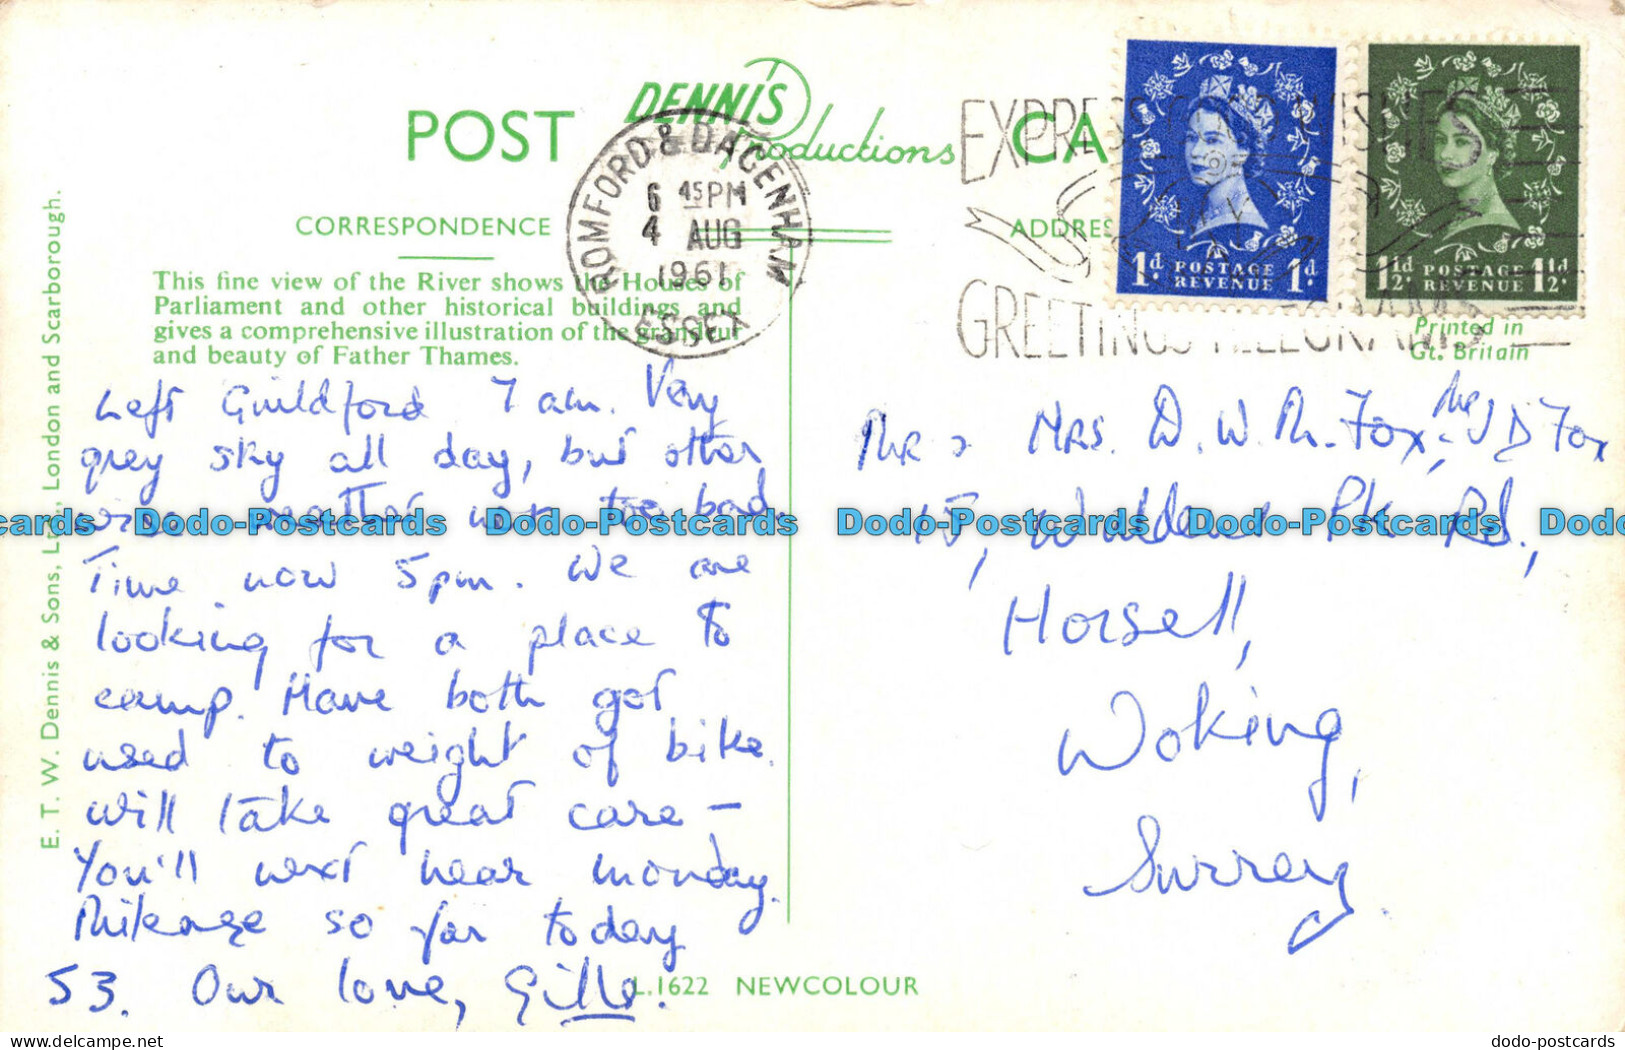 POST
DENNIS
Productions
CA
CORRESPONDENCE
ADDRES
This fine view of the River shows the Houses of
Parliament and other historical buildings and
gives a comprehensive illustration of the grandeur
and beauty of Father Thames.
E. T. W. Dennis & Sons, Ltd., London and Scarborough.
ROMFORD & DAGENHAM
6 45PM
4 AUG
1961
ESSEX
EXPRESS GOOD WISHES
BY
GREETINGS TELEGRAMS
1d POSTAGE 1d.
REVENUE
1½d POSTAGE 1½d.
REVENUE
Printed in
Gt. Britain
Left Guildford 7 am. Very
grey sky all day, but other
wise weather not too bad.
Time now 5pm. We are
looking for a place to
camp. Have both got
used to weight of bike.
will take great care –
You'll next hear monday.
Mileage so far today
53. Our love, Gills.
Mr & Mrs. D. W. M. Fox, J D Fox
15, Waldens Pk Rd.,
Horsell,
Woking,
Surrey.
L.1622 NEWCOLOUR
Dodo-Postcards Dodo-Postcards Dodo-Postcards Dodo-Postcards Dodo-Postcards
dodo-postcards
dodo-postcards